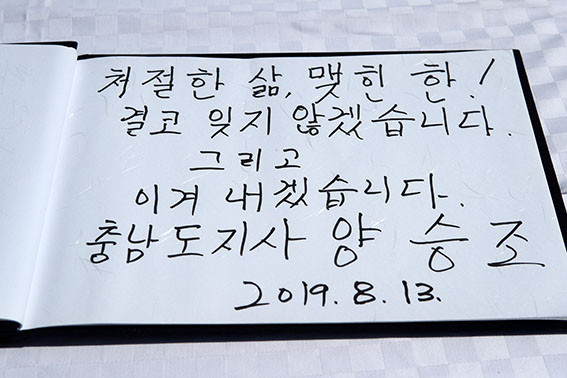 처절한 삶, 맺힌 한!
결코 잊지 않겠습니다.
그리고
이겨 내겠습니다.
충남도지사 양 승 조
2019. 8. 13.